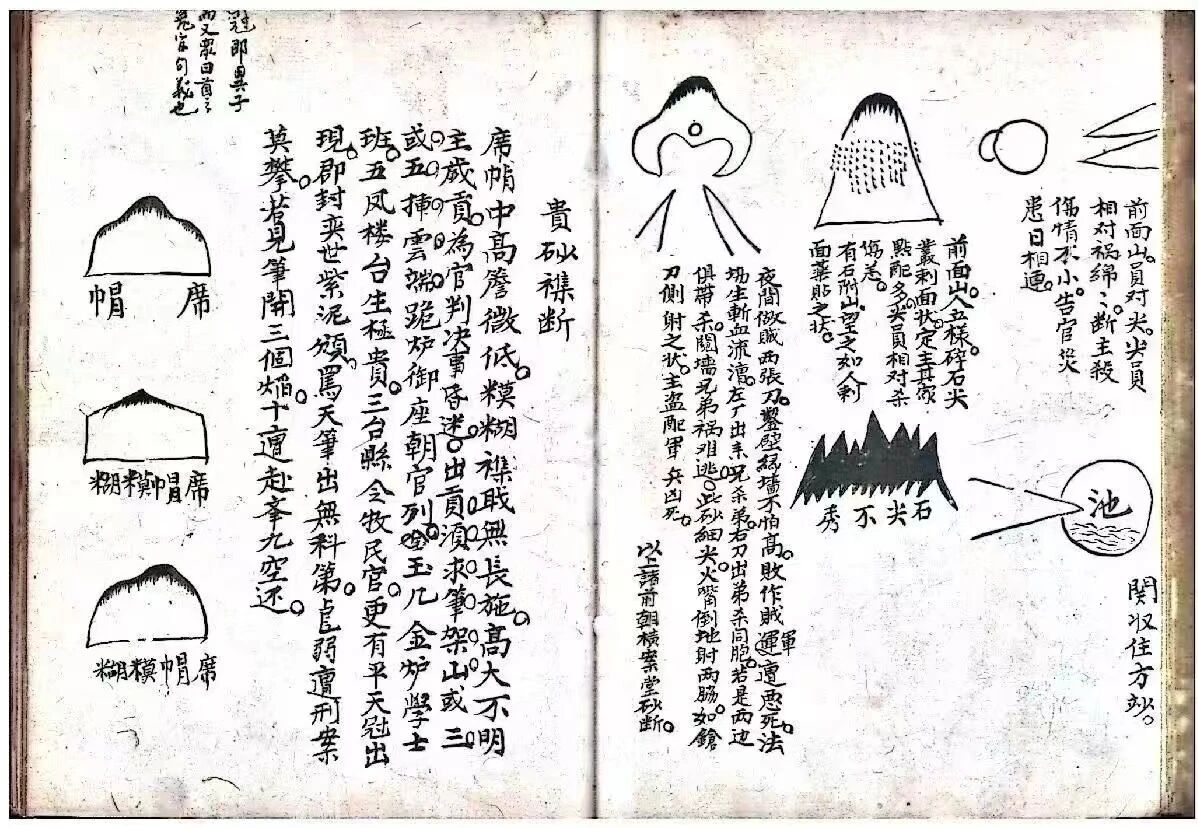 前面山員对尖。尖員
相対禍綿〻。断主殺
傷情不小。告官災
患日相逓。
池
関収住方妙。
前面山人五樣碎石尖
叢剌面状。定主其家
點配多。尖員相对杀
傷悉。
有石附山望之如人剌
面藥貼之状。
石尖不秀
夜間做贼两張刀。鑿壁緣墙不怕高。敗作賊軍運遭悪死。法
場生斬血流漕。左刀出来兄杀弟。右刀出弟杀同胞。若是两边
俱帯杀。閱墻兄弟祸难逃。此砂細尖火嘴倒地射两脇。如鎗
刀側射之状。主盗配軍兵凶死。
以上諸前朝橫案堂砂断。
貴砂襍断
席帽中高簷微低。糢糊襍戝無長施。高大不明
主歲貢。為官判决事昏迷。出貢須求筆架山。或三
或五揷雲端。跪炉御座朝官列。金玉几金炉學士
班。五凤楼台生極貴。三台縣令牧民官。更有平天冠出
現。郡封奕世紫泥頒。罵天筆出無科第。虛弱遭刑案
莫攀。若見筆開三個焰。十遭赴峯九空还。
冠即異子
而又衆曰首〻
冕官句義也
席帽
席帽糢糊
席帽糢糊